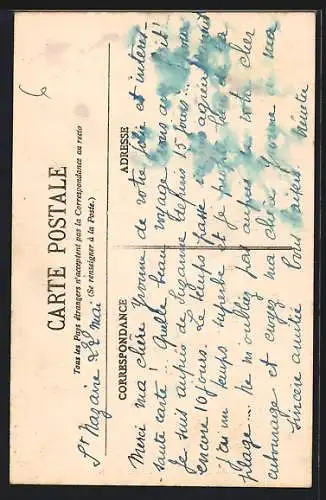 6
CARTE POSTALE
Tous les Pays étrangers n'acceptent pas la Correspondance au recto
(Se renseigner à la Poste.)
CORRESPONDANCE
ADRESSE
St Nazaire 22 Mai
Merci ma chère Yvonne de votre jolie et intéres-
sante carte !! Quelle beau voyage vous avez fait!
Je suis auprès de Suzanne depuis 15 jours
encore 10 jours. Le temps passe agréablement
j'ai un temps superbe et je profite bien de la
plage... ne m'oubliez pas auprès de votre cher
entourage et croyez ma chère Yvonne à ma
sincère amitié Bons baisers